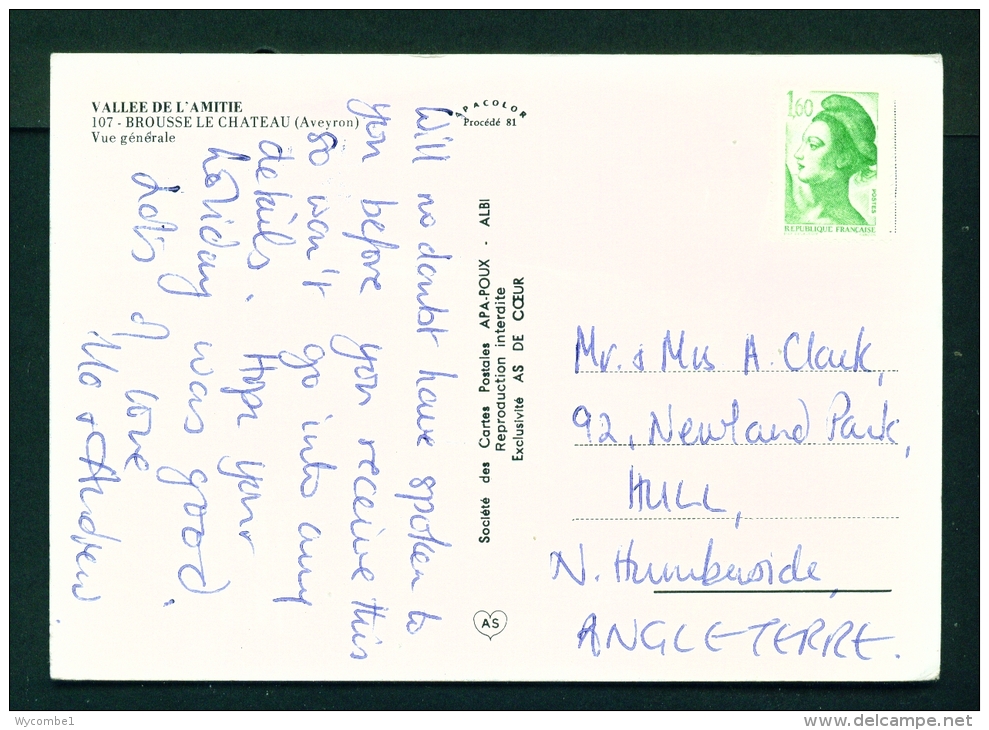 VALLEE DE L'AMITIE
107 - BROUSSE LE CHATEAU (Aveyron)
Vue générale
APACOLOR
Procédé 81
Will no doubt have spoken to
you before you receive this
so won't go into any
details. Hope your
holiday was good.
Lots of love
Mo & Andrew
Société des Cartes Postales APA-POUX - ALBI
Reproduction interdite
Exclusivité AS DE CŒUR
AS
1,60
POSTES
REPUBLIQUE FRANÇAISE
Mr. & Mrs A. Clark,
92, Newland Park,
HULL,
N. Humberside,
ANGLETERRE.
Wycombe1
delcampe.net